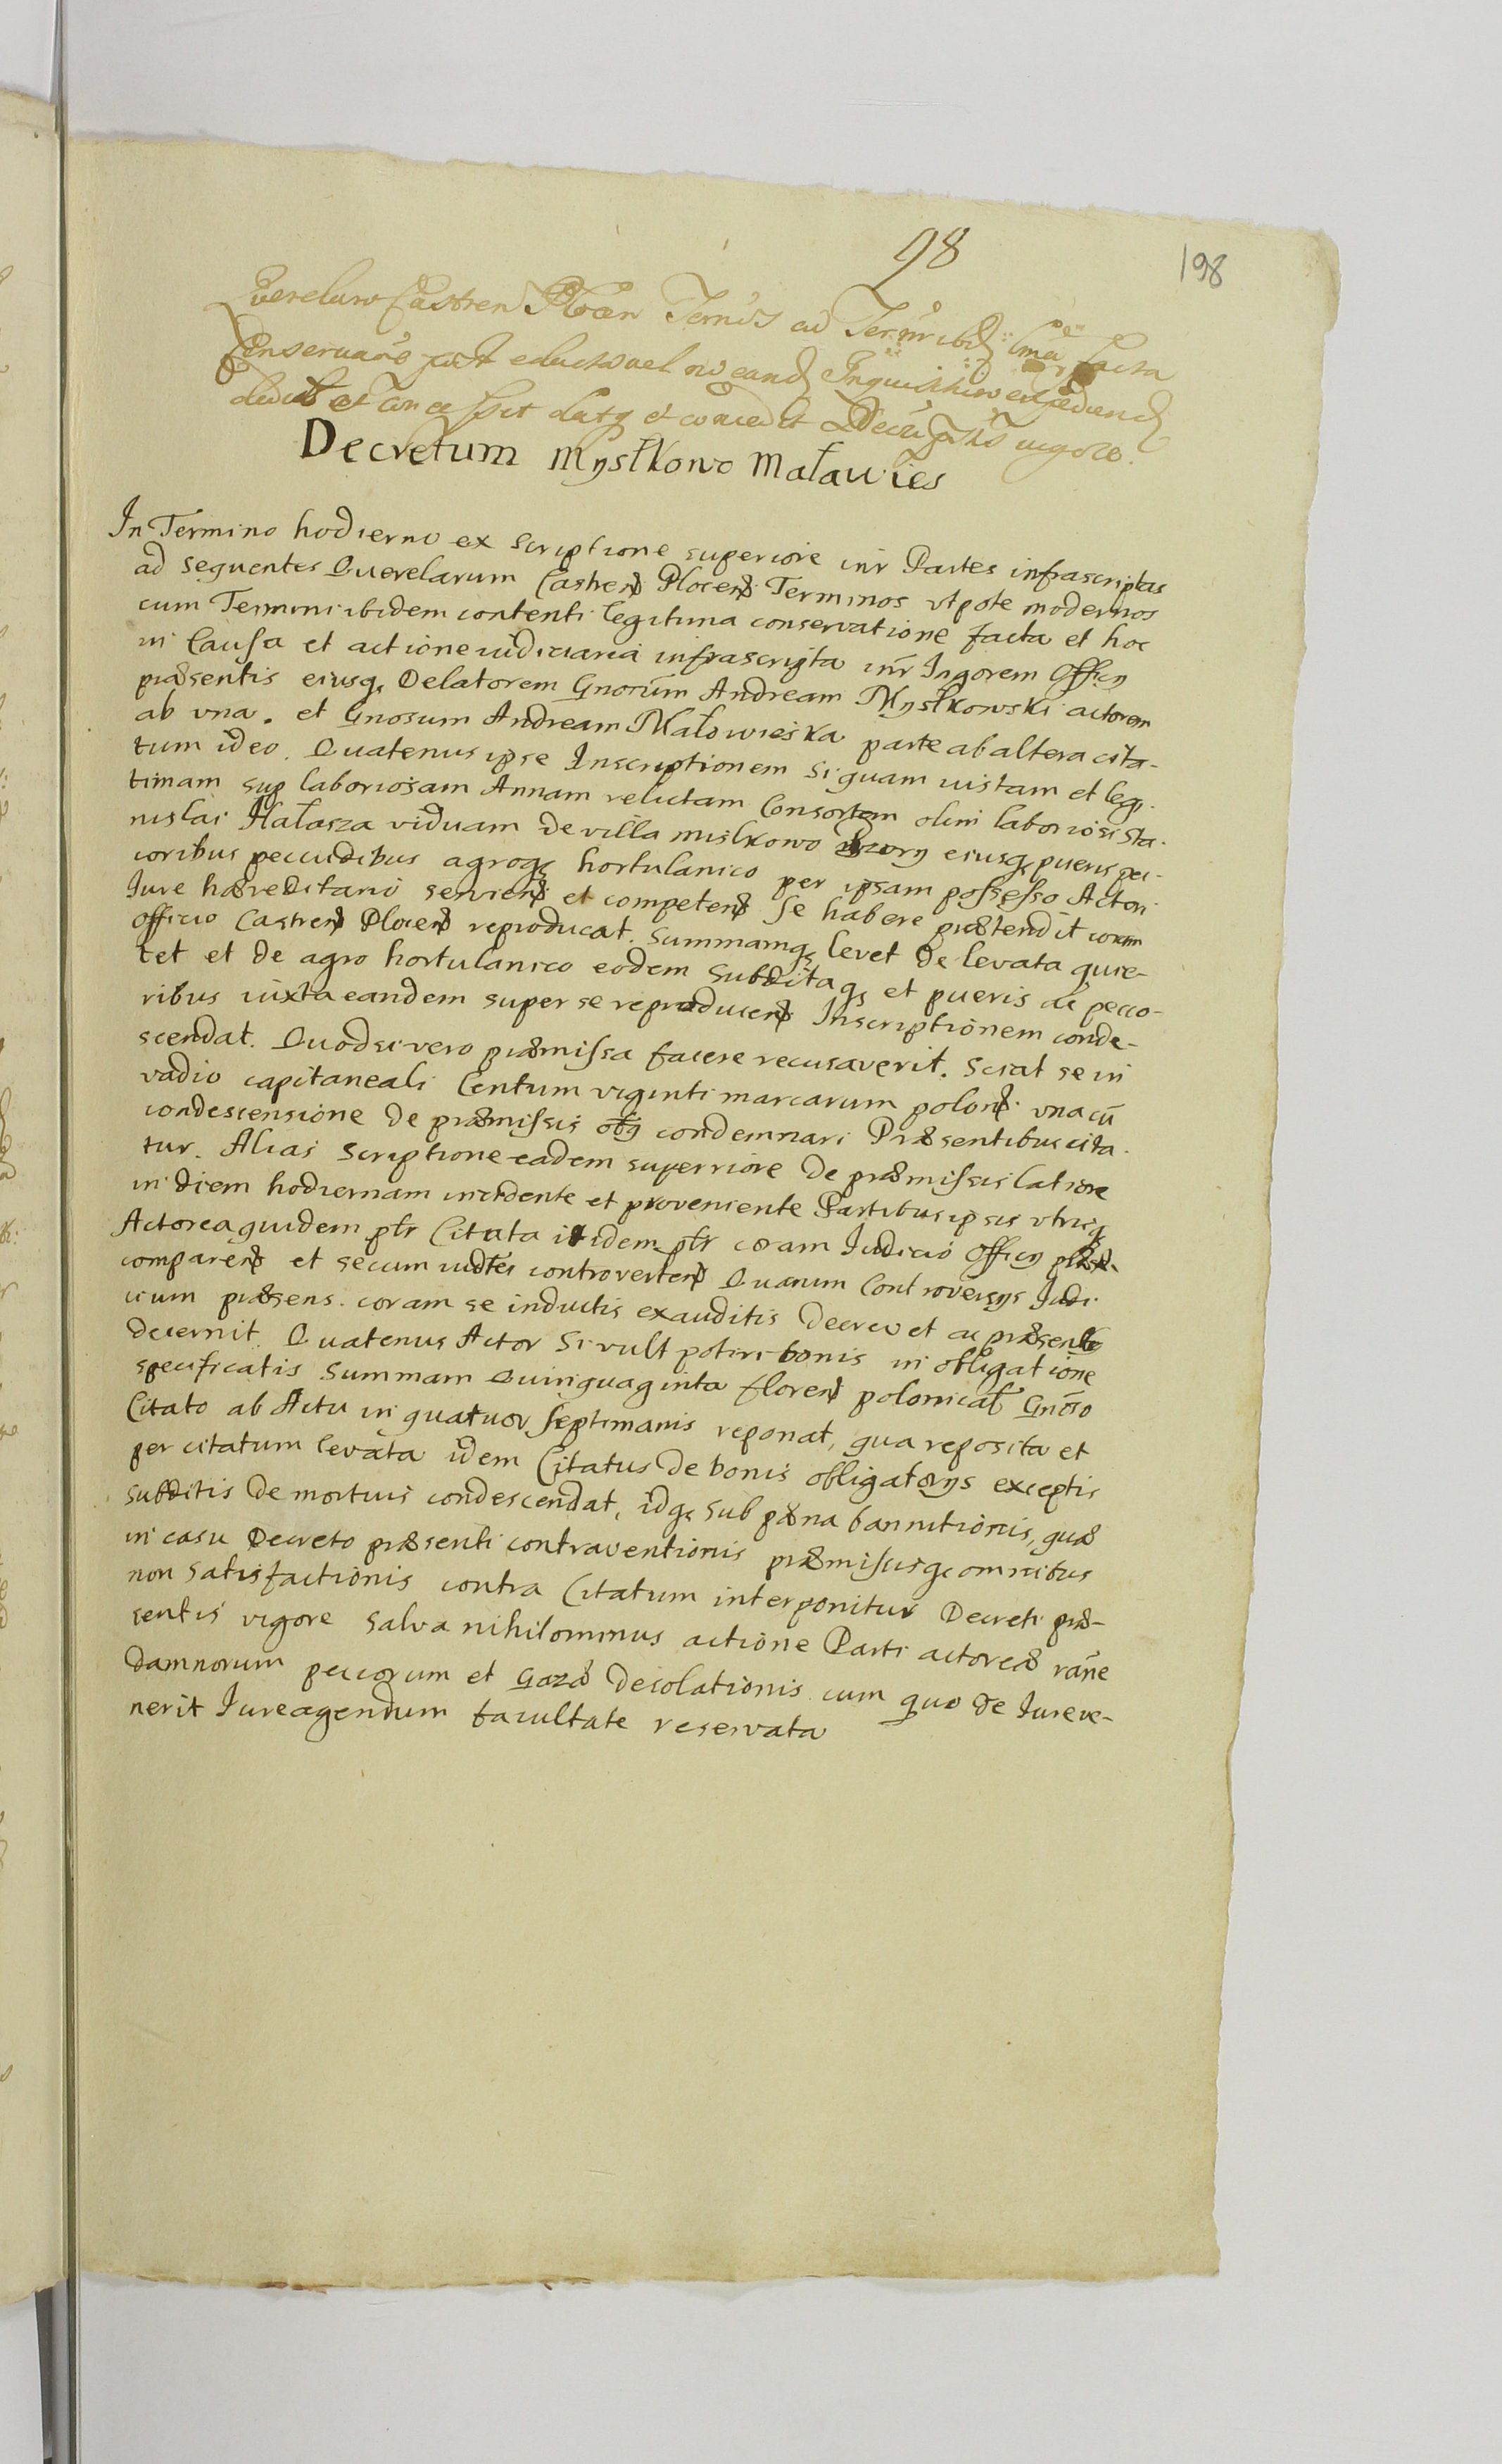 98
198
Querelaru Castren Plocen Termis ad Termi ibid facta
Conservaōe post educt vel eand Inquisitiōn expediend
dedit et concessit datq et concedit Decri pntis vigore.
Decretum Mystkowo Maławies
In Termino hodierno ex scriptione superiore inr Partes infrascriptas
ad sequentes Querelarum Castren Plocen Terminos vtpote modernos
cum Termini ibidem contenti legitima conservatione facta et hoc
in Causa et actione iudiciaria infrascripta inr Ingorem Officij
præsentis eiusq Delatorem Gnorum Andream Mystkowski actorem
ab vna. et Gnosum Andream Małowieska parte ab altera cita-
tum ideo. Quatenus ipse Inscriptionem si quam iustam et legi-
timam sup laboriosam Annam relictam Consortem olim laboriosi Sta-
nislai Hałasza viduam de villa mistkowo eiusq pueris pec-
coribus peccudibus agroq hortulanico per ipsam possesso Actori
Iure hæreditario servien et competen se habere prætendit coram
Officio Castren Plocen reproducat. Summamq levet de levata quie-
tet et de agro hortulanico eodem subditaq et pueris ac pecco-
ribus iuxta eandem super se reproducen Inscriptionem conde-
scendat. Quodsi vero præmissa facere recusaverit. Sciat se in
vadio capitaneali Centum viginti marcarum polon. vna cū
condescensione de præmissis condemnari Præsentibus cita-
tur. Alias Scriptione eadem superiore de præmissis latiore
in diem hodiernam incidente et proveniente Partibus ipsis vtrisq
Actorea quidem ptr Citata itidem ptr coram Iudicio Officij præs.
comparen et secum iudter controverten Quarum Controversijs Iudi-
cium præsens. coram se inductis exauditis decrevit ac præsente
decernit Quatenus Actor si vult potiri bonis in obligatione
specificatis Summam Quinquaginta floren polonical Gnoso
Citato ab Actu in quatuor septimanis reponat, qua reposita et
per citatum levata idem Citatus de bonis obligatorijs exceptis
subditis demortuis condescendat, idq sub pæna bannitionis, quæ
in casu Decreto præsenti contraventionis præmissisq omnibus
non satisfactionis contra Citatum interponitur Decreti præ-
sentis vigore salva nihilominus actione Parti actoreæ rāne
damnorum peccorum et Gazæ desolationis cum quo de Iure ve-
nerit Iure agendum facultate reservata